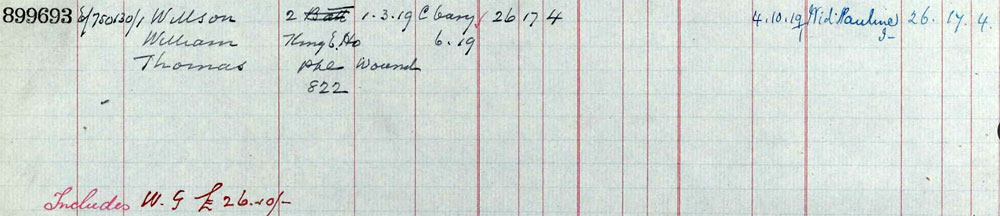 899693 E/750130/1 Willson 2 Batt 1.3.19 C bary 26 17 4 4.10.19 Wid: Pauline 26. 17. 4.
William King E. Ho 6.19 J-
Thomas pte Wound
822
Includes W. G £26.10/-